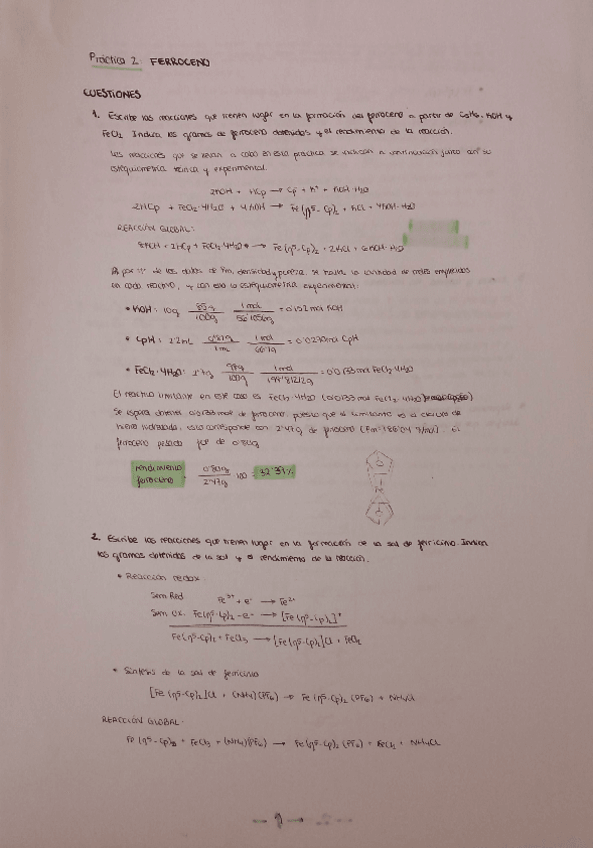 Práctica 2. FERROCENO
CUESTIONES
1. Escribe las reacciones que tienen lugar en la formación del ferroceno a partir de C5H6, KOH y
FeCl2. Indica los gramos de ferroceno obtenidos y el rendimiento de la reacción.
Las reacciones que se llevan a cabo en esta práctica se indican a continuación junto con su
estequiometría teórica y experimental.
2KOH + HCp → Cp⁻ + K⁺ + KOH·H2O
2HCp + FeCl2·4H2O + 4KOH → Fe(η5-Cp)2 + KCl + 4KOH·H2O
REACCIÓN GLOBAL:
8KOH + 2HCp + FeCl2·4H2O → Fe(η5-Cp)2 + 2KCl + 6KOH·H2O
A partir de los datos de Pm, densidad y pureza, se halla la cantidad de moles empleados
en cada reactivo, y con eso la estequiometría experimental:
• KOH: 10g 85g/100g 1mol/56'1056g = 0'152 mol KOH
• CpH: 2'2mL /1mL 1mol/66'1g = 0'0270mol CpH
• FeCl2·4H2O: 99g/100g 1mol/ = 0'0133 mol FeCl2·4H2O
El reactivo limitante en este caso es FeCl2·4H2O (0'0133 mol FeCl2·4H2O)
Se espera obtener 0'0133 mol de ferroceno, puesto que el limitante es el cloruro de
hierro hidratado, esto corresponde con 2'47g de ferroceno (Pm: 186'04 g/mol). El
ferroceno pesado fue de 0'80g
rendimiento ferroceno = 0'80g/2'47g · 100 = 32'39%
Fe
2. Escribe las reacciones que tienen lugar en la formación de la sal de ferricinio. Indica
los gramos obtenidos de la sal y el rendimiento de la reacción.
• Reacción redox:
Sem Red. Fe³⁺ + e⁻ → Fe²⁺
Sem Ox. Fe(η5-Cp)2 - e⁻ → [Fe(η5-Cp)2]⁺
Fe(η5-Cp)2 + FeCl3 → [Fe(η5-Cp)2]Cl + FeCl2
• Síntesis de la sal de ferricinio
[Fe(η5-Cp)2]Cl + (NH4)(PF6) → Fe(η5-Cp)2(PF6) + NH4Cl
REACCIÓN GLOBAL:
Fe(η5-Cp)2 + FeCl3 + (NH4)(PF6) → Fe(η5-Cp)2(PF6) + FeCl2 + NH4Cl